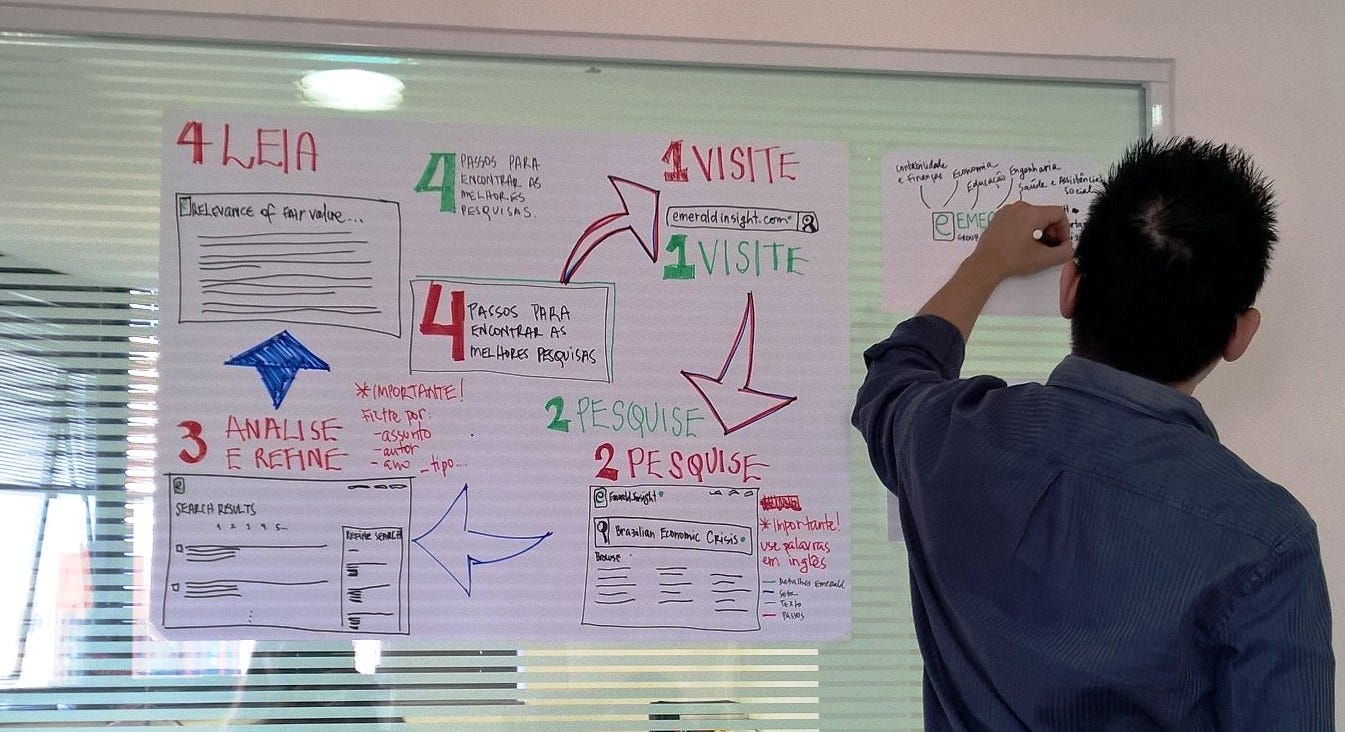 4 LEIA
RELEVANCE OF FAIR VALUE...
4 PASSOS PARA
ENCONTRAR AS
MELHORES
PESQUISAS.
1 VISITE
emeraldinsight.com
1 VISITE
4 PASSOS PARA
ENCONTRAR AS
MELHORES PESQUISAS
2 PESQUISE
2 PESQUISE
e Emerald Insight
Brazilian Economic Crisis
Browse
*Importante!
use palavras
em inglês
Detalhes Emerald
Seta
Texto
Passos
3 ANALISE
E REFINE
*IMPORTANTE!
Filtre por:
-assunto
-autor
-ano -tipo...
SEARCH RESULTS
1 2 3 4 5
REFINE SEARCH
Contabilidade
e Finanças
Economia
Educação
Engenharia
Saúde e Assistência
Social
e EME
GROUP